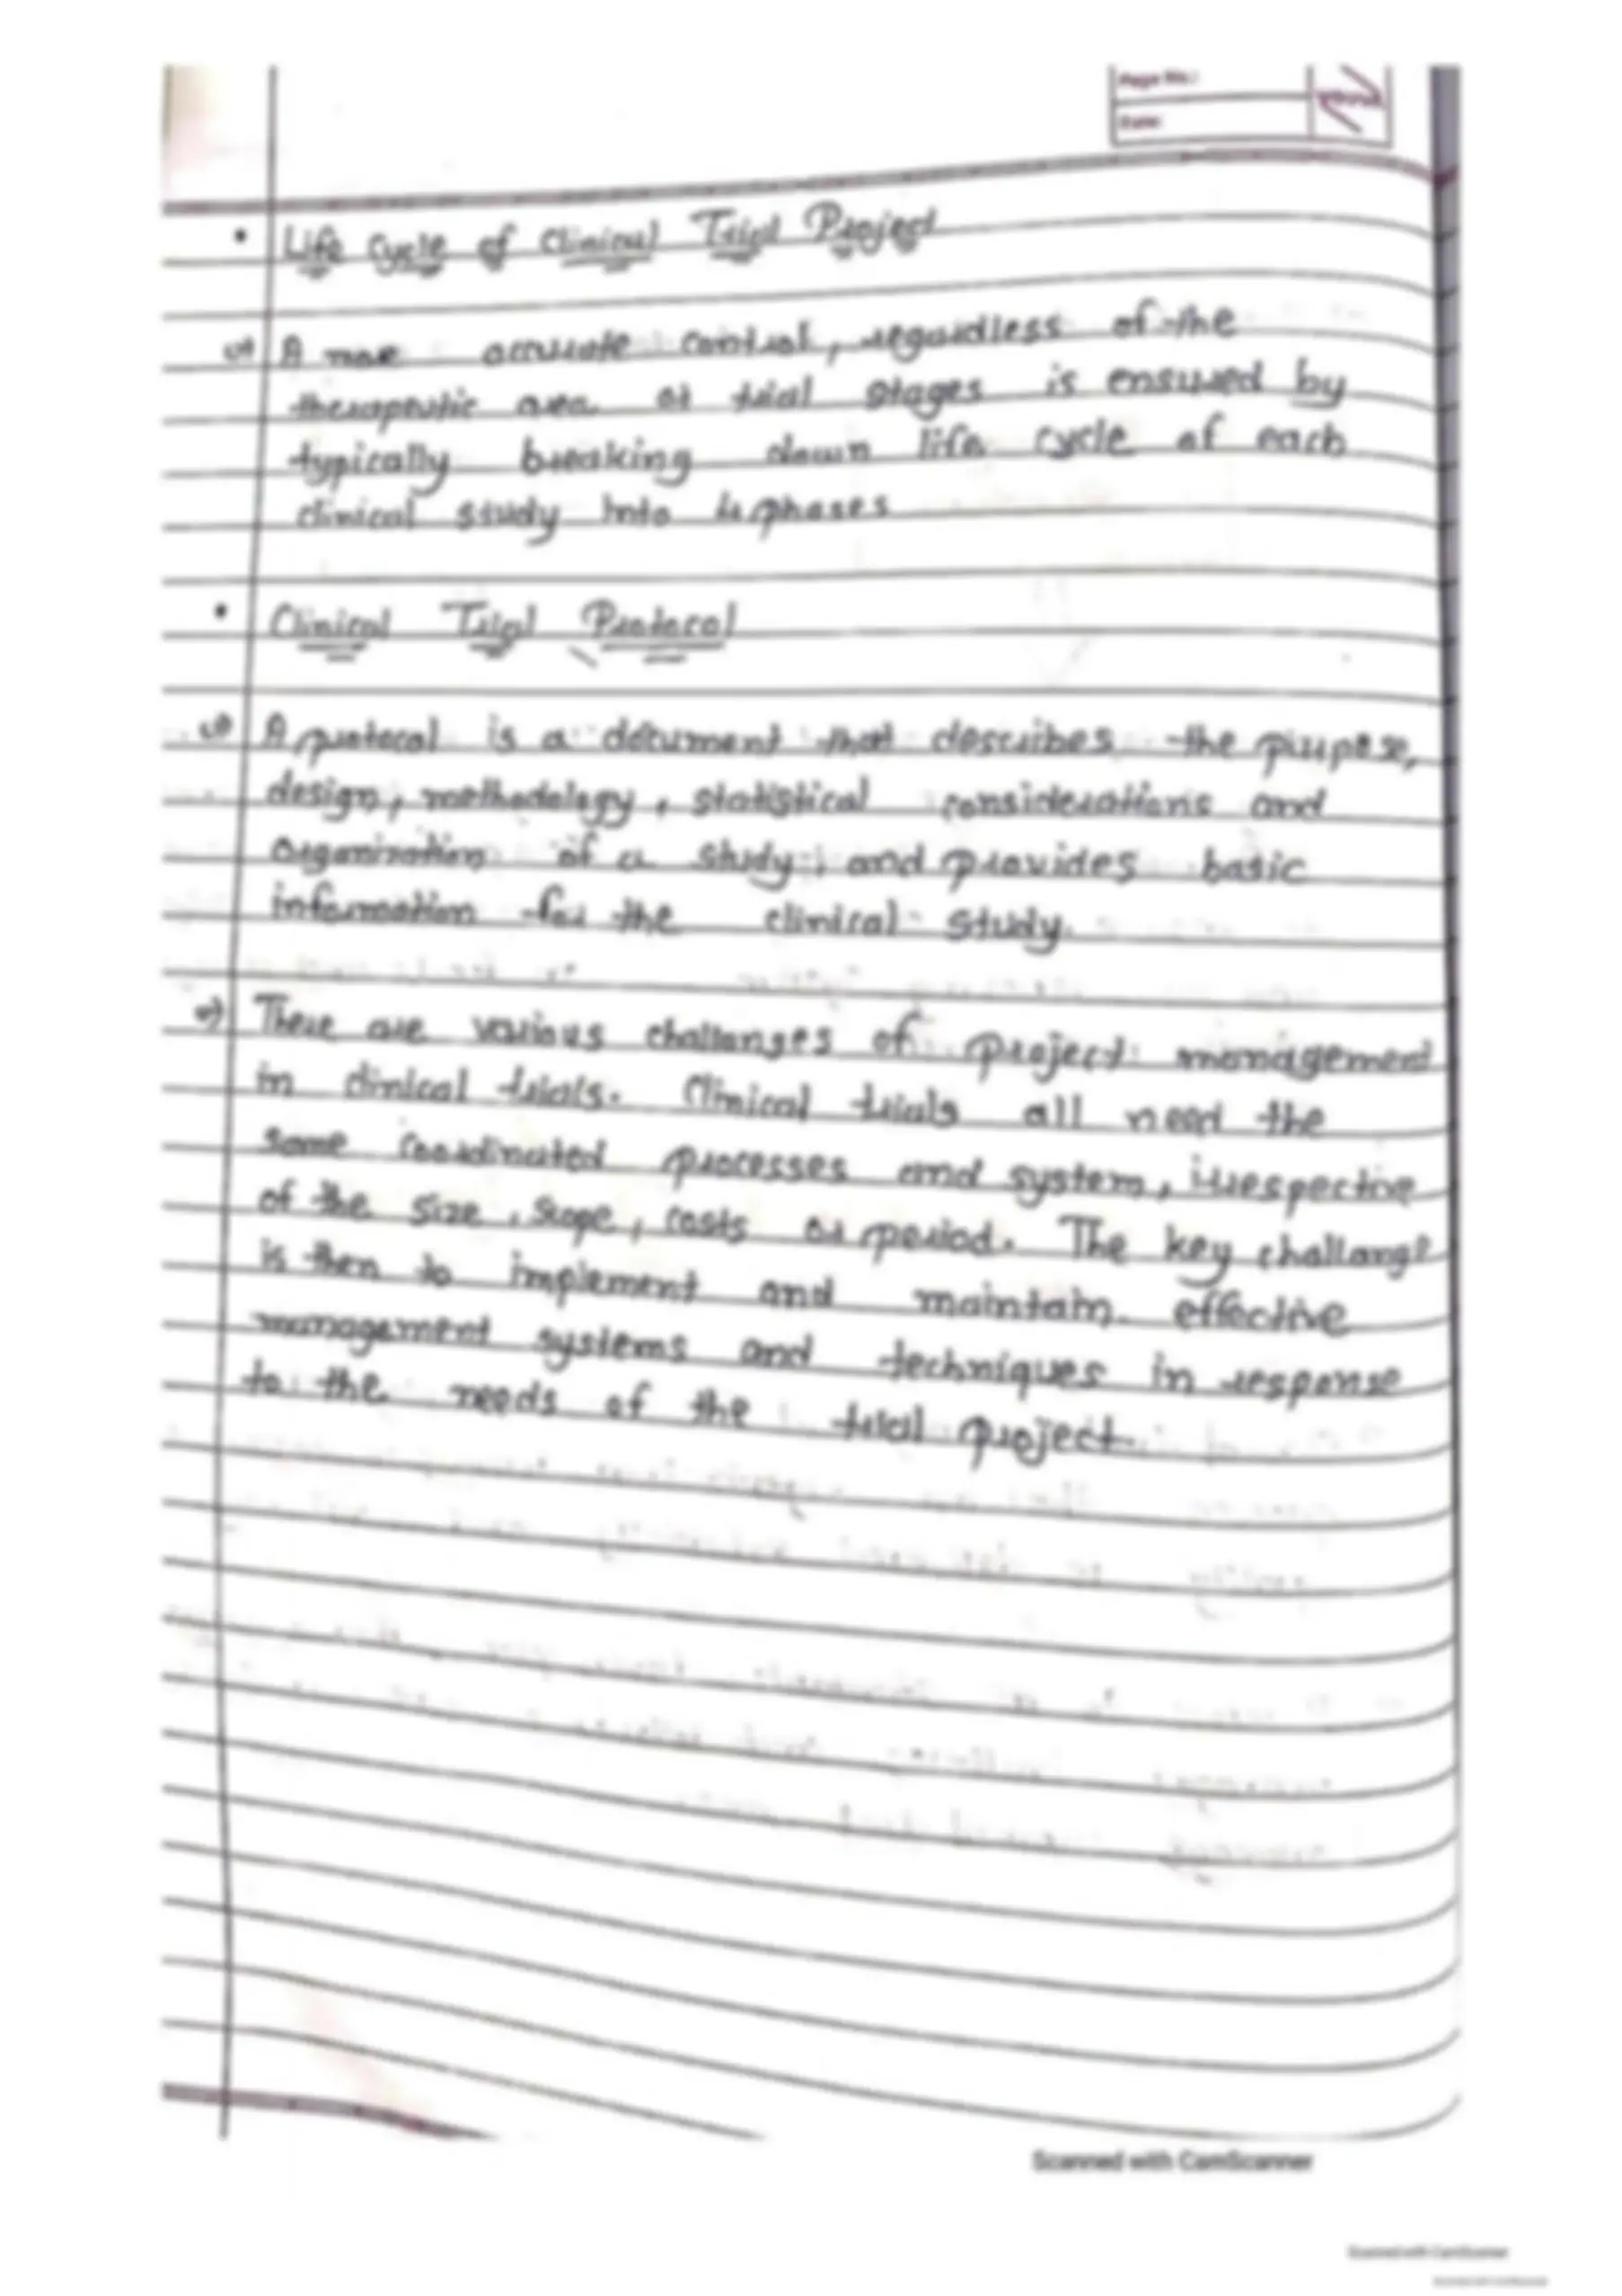 Page No.:
Date:
• Life Cycle of Clinical Trial Project
A more accurate control, regardless of the
therapeutic area or trial stages is ensured by
typically breaking down life cycle of each
clinical study into 4 phases
• Clinical Trial Protocol
A protocol is a document that describes the purpose,
design, methodology, statistical considerations and
organization of a study, and provides basic
information for the clinical study.
There are various challanges of project management
in clinical trials. Clinical trials all need the
same coordinated processes and system, irrespective
of the size, scope, costs or period. The key challange
is then to implement and maintain effective
management systems and techniques in response
to the needs of the trial project.
Scanned with CamScanner
Scanned with CamScanner
Scanned with CamScanner